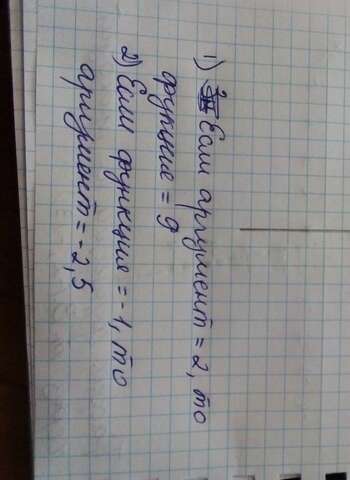 1) Если аргумент = 2, то
функцие = 9
2) Если функцие = -1, то
аргумент = -2,5